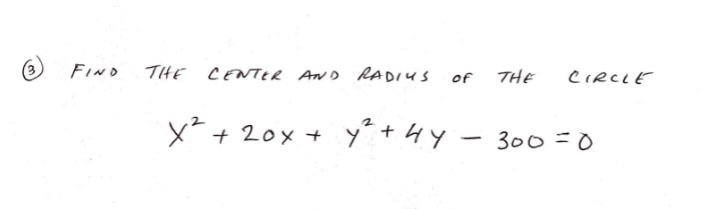 ③ FIND THE CENTER AND RADIUS OF THE CIRCLE
x² + 20x + y² + 4y - 300 = 0